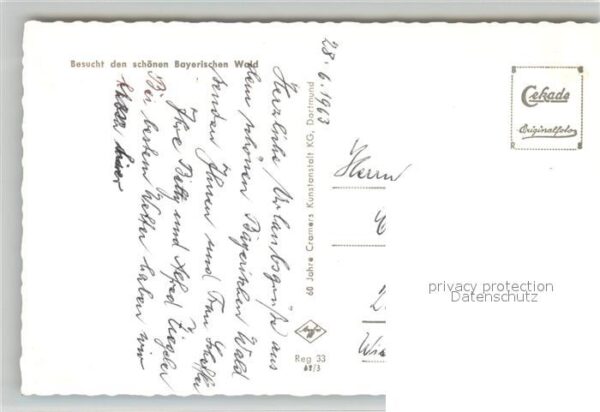 Besucht den schönen Bayerischen Wald
28. 6. 1963
Herzliche Urlaubsgrüße aus
dem schönen Bayerischen Wald
senden Ihnen und Frau
Ihre Betty und Alfred Ziegler
Bei bestem Wetter haben wir
60 Jahre Cramers Kunstanstalt KG, Dortmund
Reg 33
62/3
Cekade
Originalfoto
Herrn
privacy protection
Datenschutz